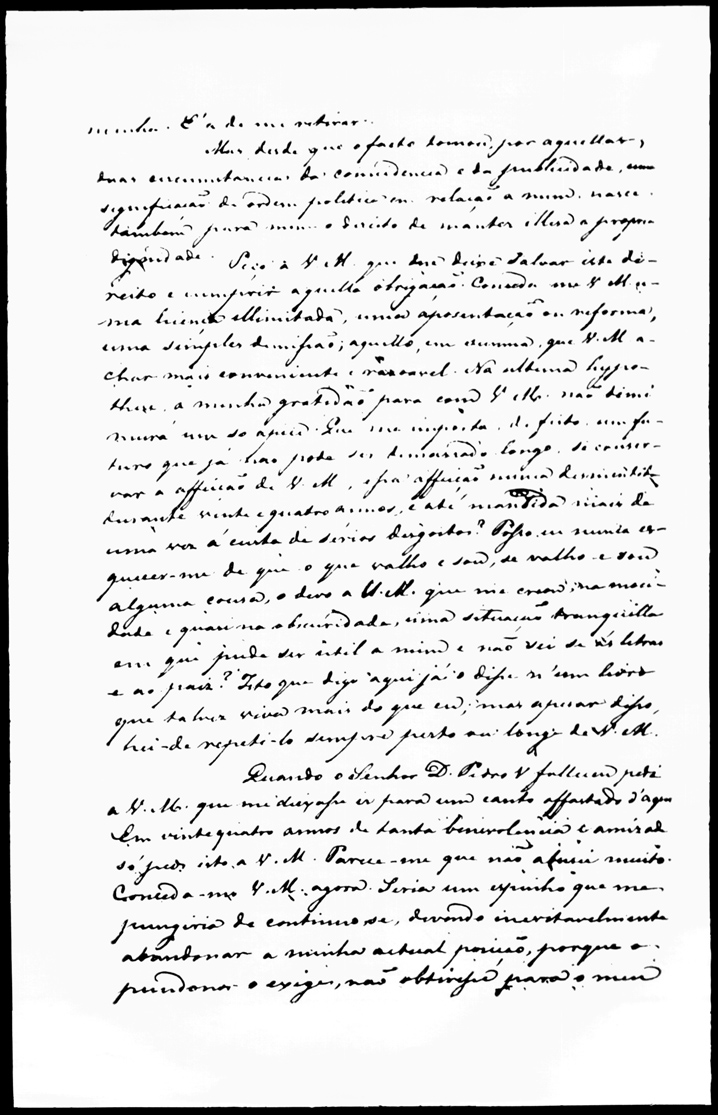 minha. É a de me retirar.
Mas desde que o facto tomou, por aquellas
duas circumstancias da coincidencia e da publicidade, uma
significação de ordem politica em relação a mim, nasce
tambem para mim o direito de manter illesa a propria
dignidade. Peço a V. M. que me deixe salvar este di-
reito e cumprir aquella obrigação. Conceda-me V. M. u-
ma licença illimitada, uma aposentação ou reforma,
uma simples demissão; aquillo, em summa, que V. M. a-
char mais conveniente e rasoavel. Na ultima hypo-
these, a minha gratidão para com V. M. não dimi
nuirá um só apice. Que me importa, de feito, um fu-
turo que já não pode ser demasiado longo, se conser-
var a affeição de V. M., essa affeição nunca desmentida
durante vinte e quatro annos, e até mantida mais de
uma vez á custa de sérios desgostos? Posso eu nunca es-
quecer-me de que o que valho e sou, se valho e sou
alguma cousa, o devo a V. M. que me creou, na moci
dade e quasi na obscuridade, uma situação tranquilla
em que pude ser util a mim e não sei se ás letras
e ao paiz? Isto que digo aqui já o disse n'um livro
que talvez viva mais do que eu; mas apesar disso,
hei-de repeti-lo sempre perto ou longe de V. M.
Quando o Senhor D. Pedro V falleceu pedi
a V. M. que me deixasse ir para um canto affastado d'aqui
Em vinte quatro annos de tanta benevolencia e amizade
só pedi isto a V. M. Parece-me que não abusei muito.
Conceda-mo V. M. agora. Seria um espinho que me
pungiria de continuo se, devendo inevitavelmente
abandonar a minha actual posição, porque o
pundonor o exige, não obtivesse para o meu